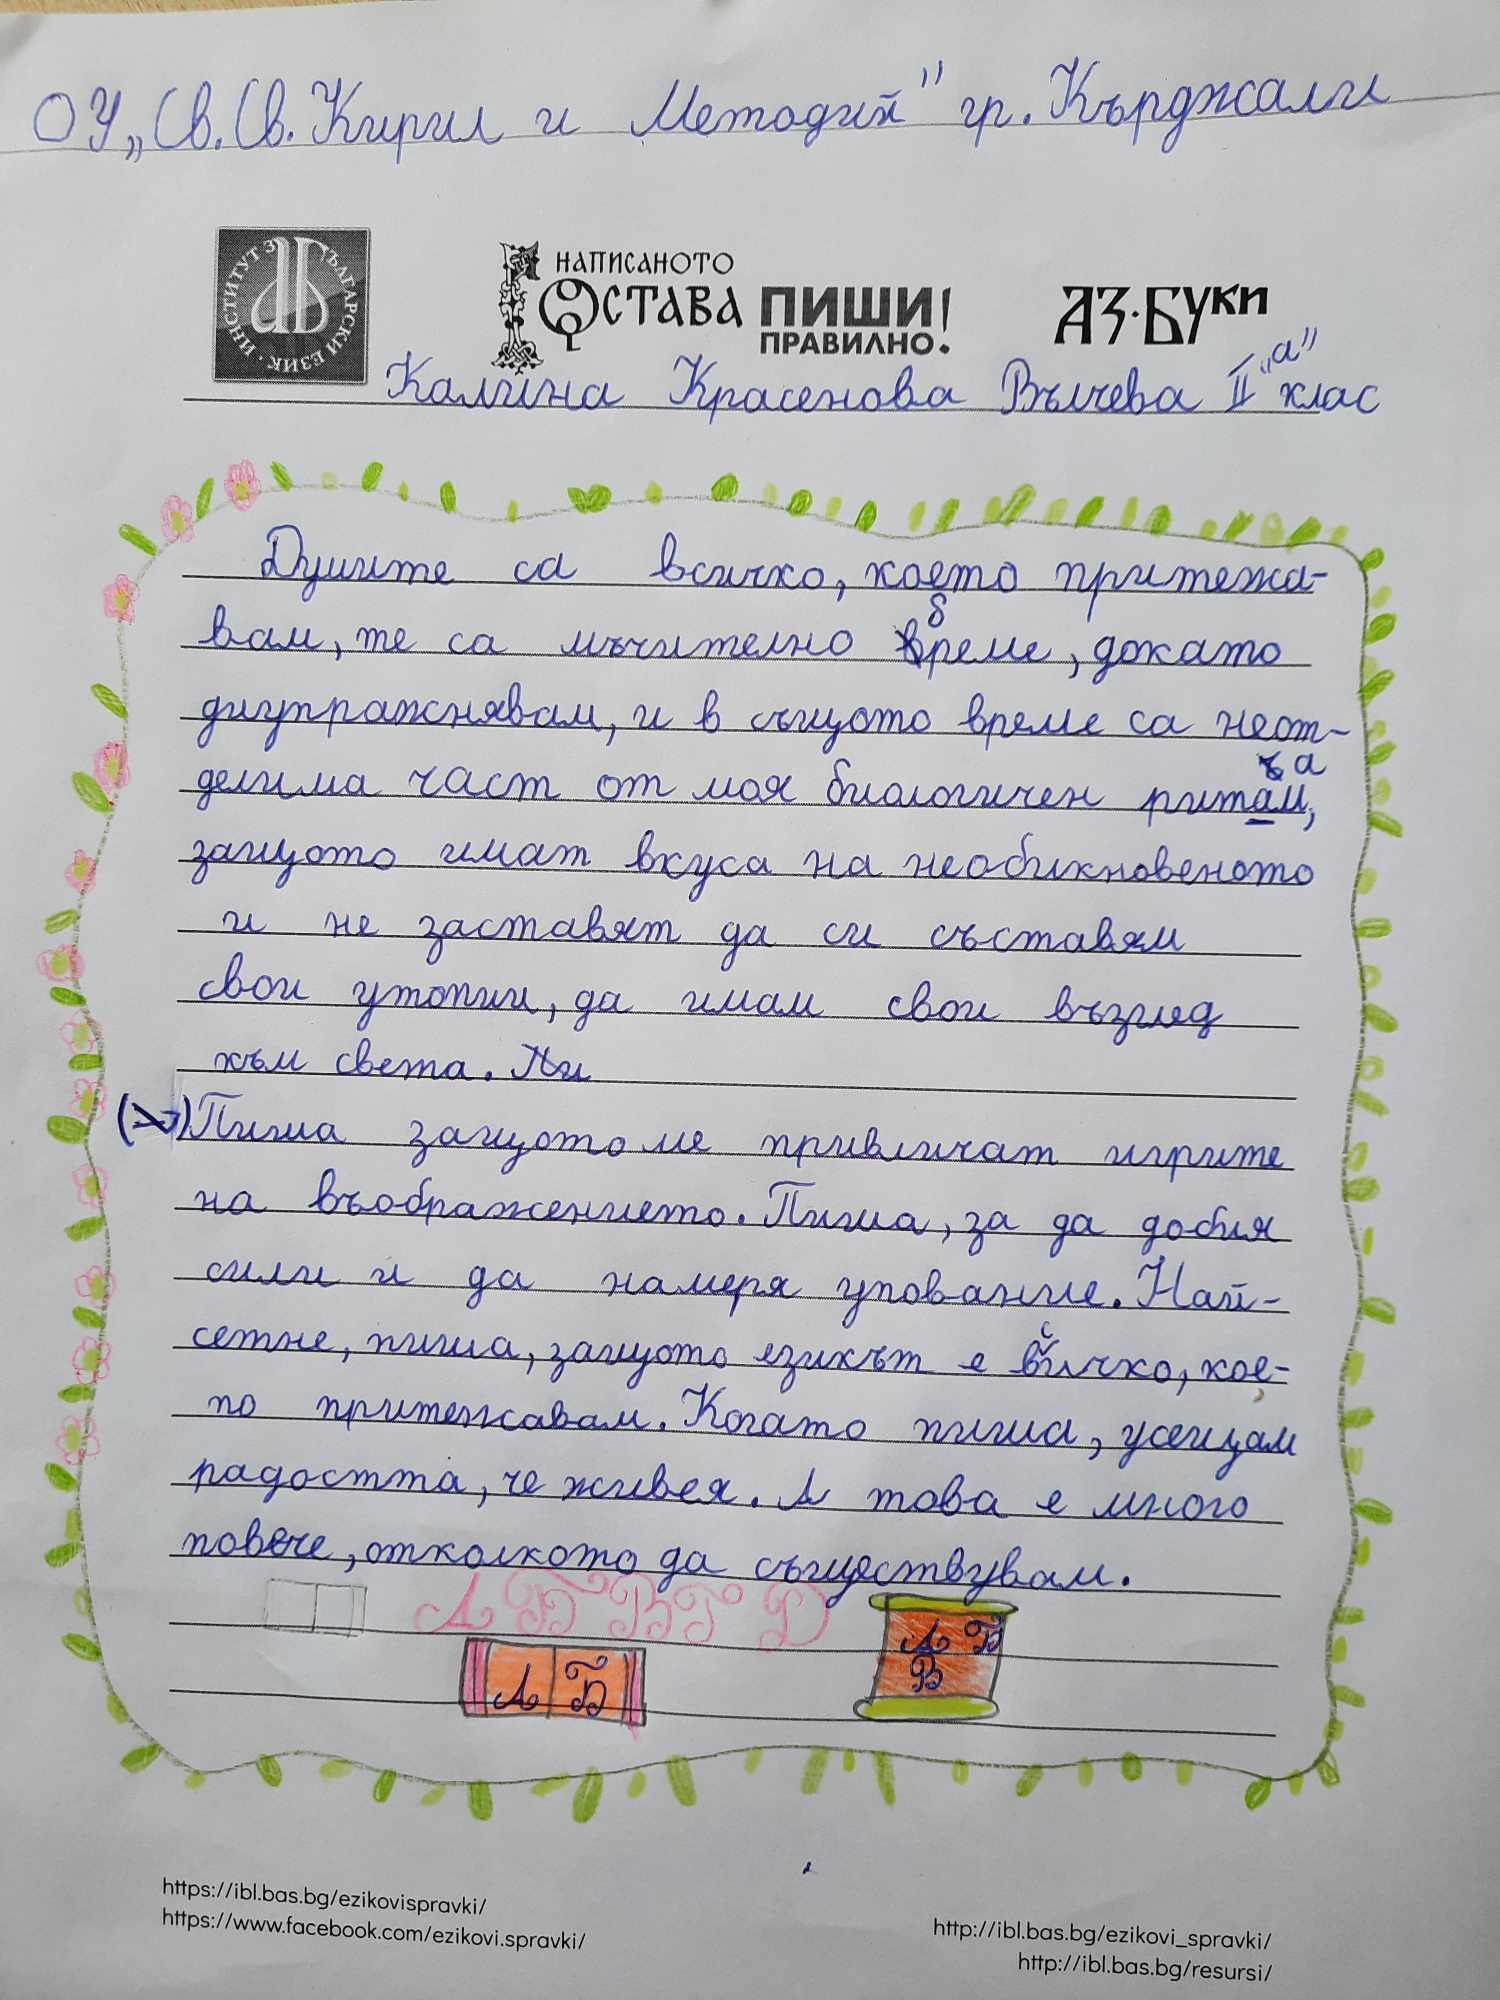 ОУ „Св. Св. Кирил и Методий" гр. Кърджали
ИНСТИТУТ ЗА БЪЛГАРСКИ ЕЗИК
НАПИСАНОТО
ОСТАВА ПИШИ!
ПРАВИЛНО.
АЗ·БУКИ
Калина Красенова Вълчева II „а" клас
Думите са всичко, което притежа-
вам, те са мъчително бреме, докато
ги упражнявам, и в същото време са неот-
делима част от моя биологичен ритам,
защото имат вкуса на необикновеното
и не заставят да си съставям
свои утопии, да имам свои възглед
към света. Пи
Пиша защото ме привличат игрите
на въображението. Пиша, за да добия
сили и да намеря упование. Най-
сетне, пиша, защото езикът е всичко, кое-
то притежавам. Когато пиша, усещам
радостта, че живея. А това е много
повече, отколкото да съществувам.
А Б В Г Д
А Б
А Б
В
https://ibl.bas.bg/ezikovispravki/
https://www.facebook.com/ezikovi.spravki/
http://ibl.bas.bg/ezikovi_spravki/
http://ibl.bas.bg/resursi/